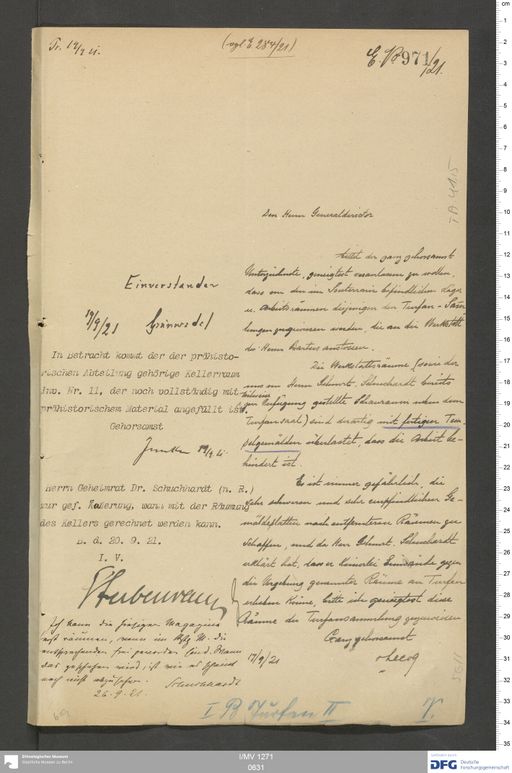 Pr. 17/9 21.
(vgl E 284/21)
E. No 971/21.
Den Herrn Generaldirector
bittet der ganz gehorsamst
Unterzeichnete, geneigtest veranlassen zu wollen,
dass von den im Souterrain befindlichen Lager
u. Arbeitsräumen diejenigen der Turfan-Samm
lungen zugewiesen werden, die an die Werkstatt
des Herrn Bartus anstossen.
Die Werkstatträume (sowie der
uns von Herrn Geheimrt. Schuchhardt bereits
zur Verfügung gestellte Schauraum neben dem
Turfansaal) sind derartig mit fertigen Tem-
pelgemälden überlastet, dass die Arbeit be-
hindert ist.
Es ist immer gefährlich, die
sehr schweren und sehr empfindlichen Ge-
mäldeplatten nach entfernteren Räumen zu
schaffen, und da Herr Geheimrt. Schuchhardt
erklärt hat, dass er keinerlei Einwände gegen
die Hergebung genannter Räume an Turfan
erheben könne, bitte ich geneigtest diese
Räume der Turfansammlung zuzuwenden
Ganz gehorsamst
17/9/21
v Lecoq
Einverstanden
17/9/21 Grünwedel
In Betracht kommt der der prähisto-
rischen Abteilung gehörige Kellerraum
Inv. Nr. 11, der noch vollständig mit
prähistorischem Material angefüllt ist.
Gehorsamst
Herrn Geheimrat Dr. Schuchhardt (n. R.)
zur gef. Äußerung, wann mit der Räumung
des Kellers gerechnet werden kann.
B. d. 20. 9. 21.
I. V.
Ich kann die hiesigen Magazine
erst räumen, wenn im
das geschehen wird, ist wie es scheint
noch nicht abzusehen.
26.9.21. Schuchhardt
I B Turfan II
TA 4115
Ethnologisches Museum
Staatliche Museen zu Berlin
I/MV 1271
0631
DFG
Deutsche
Forschungsgemeinschaft